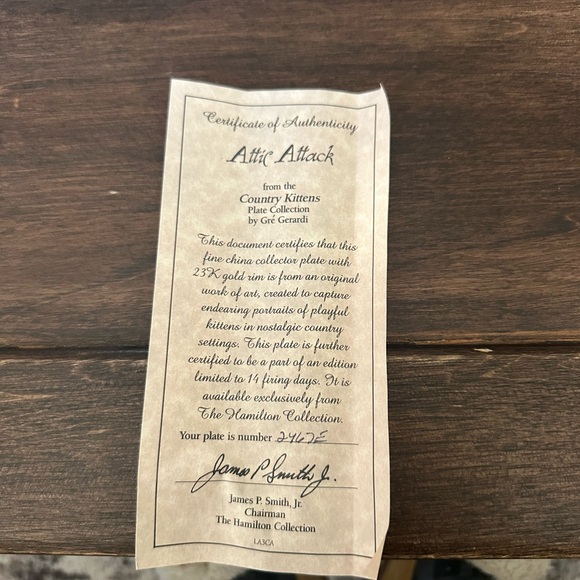 Certificate of Authenticity
Attic Attack
from the
Country Kittens
Plate Collection
by Gré Gerardi
This document certifies that this
fine china collector plate with
23K gold rim is from an original
work of art, created to capture
endearing portraits of playful
kittens in nostalgic country
settings. This plate is further
certified to be a part of an edition
limited to 14 firing days. It is
available exclusively from
The Hamilton Collection.
Your plate is number 2467E
James P Smith Jr.
James P. Smith, Jr.
Chairman
The Hamilton Collection